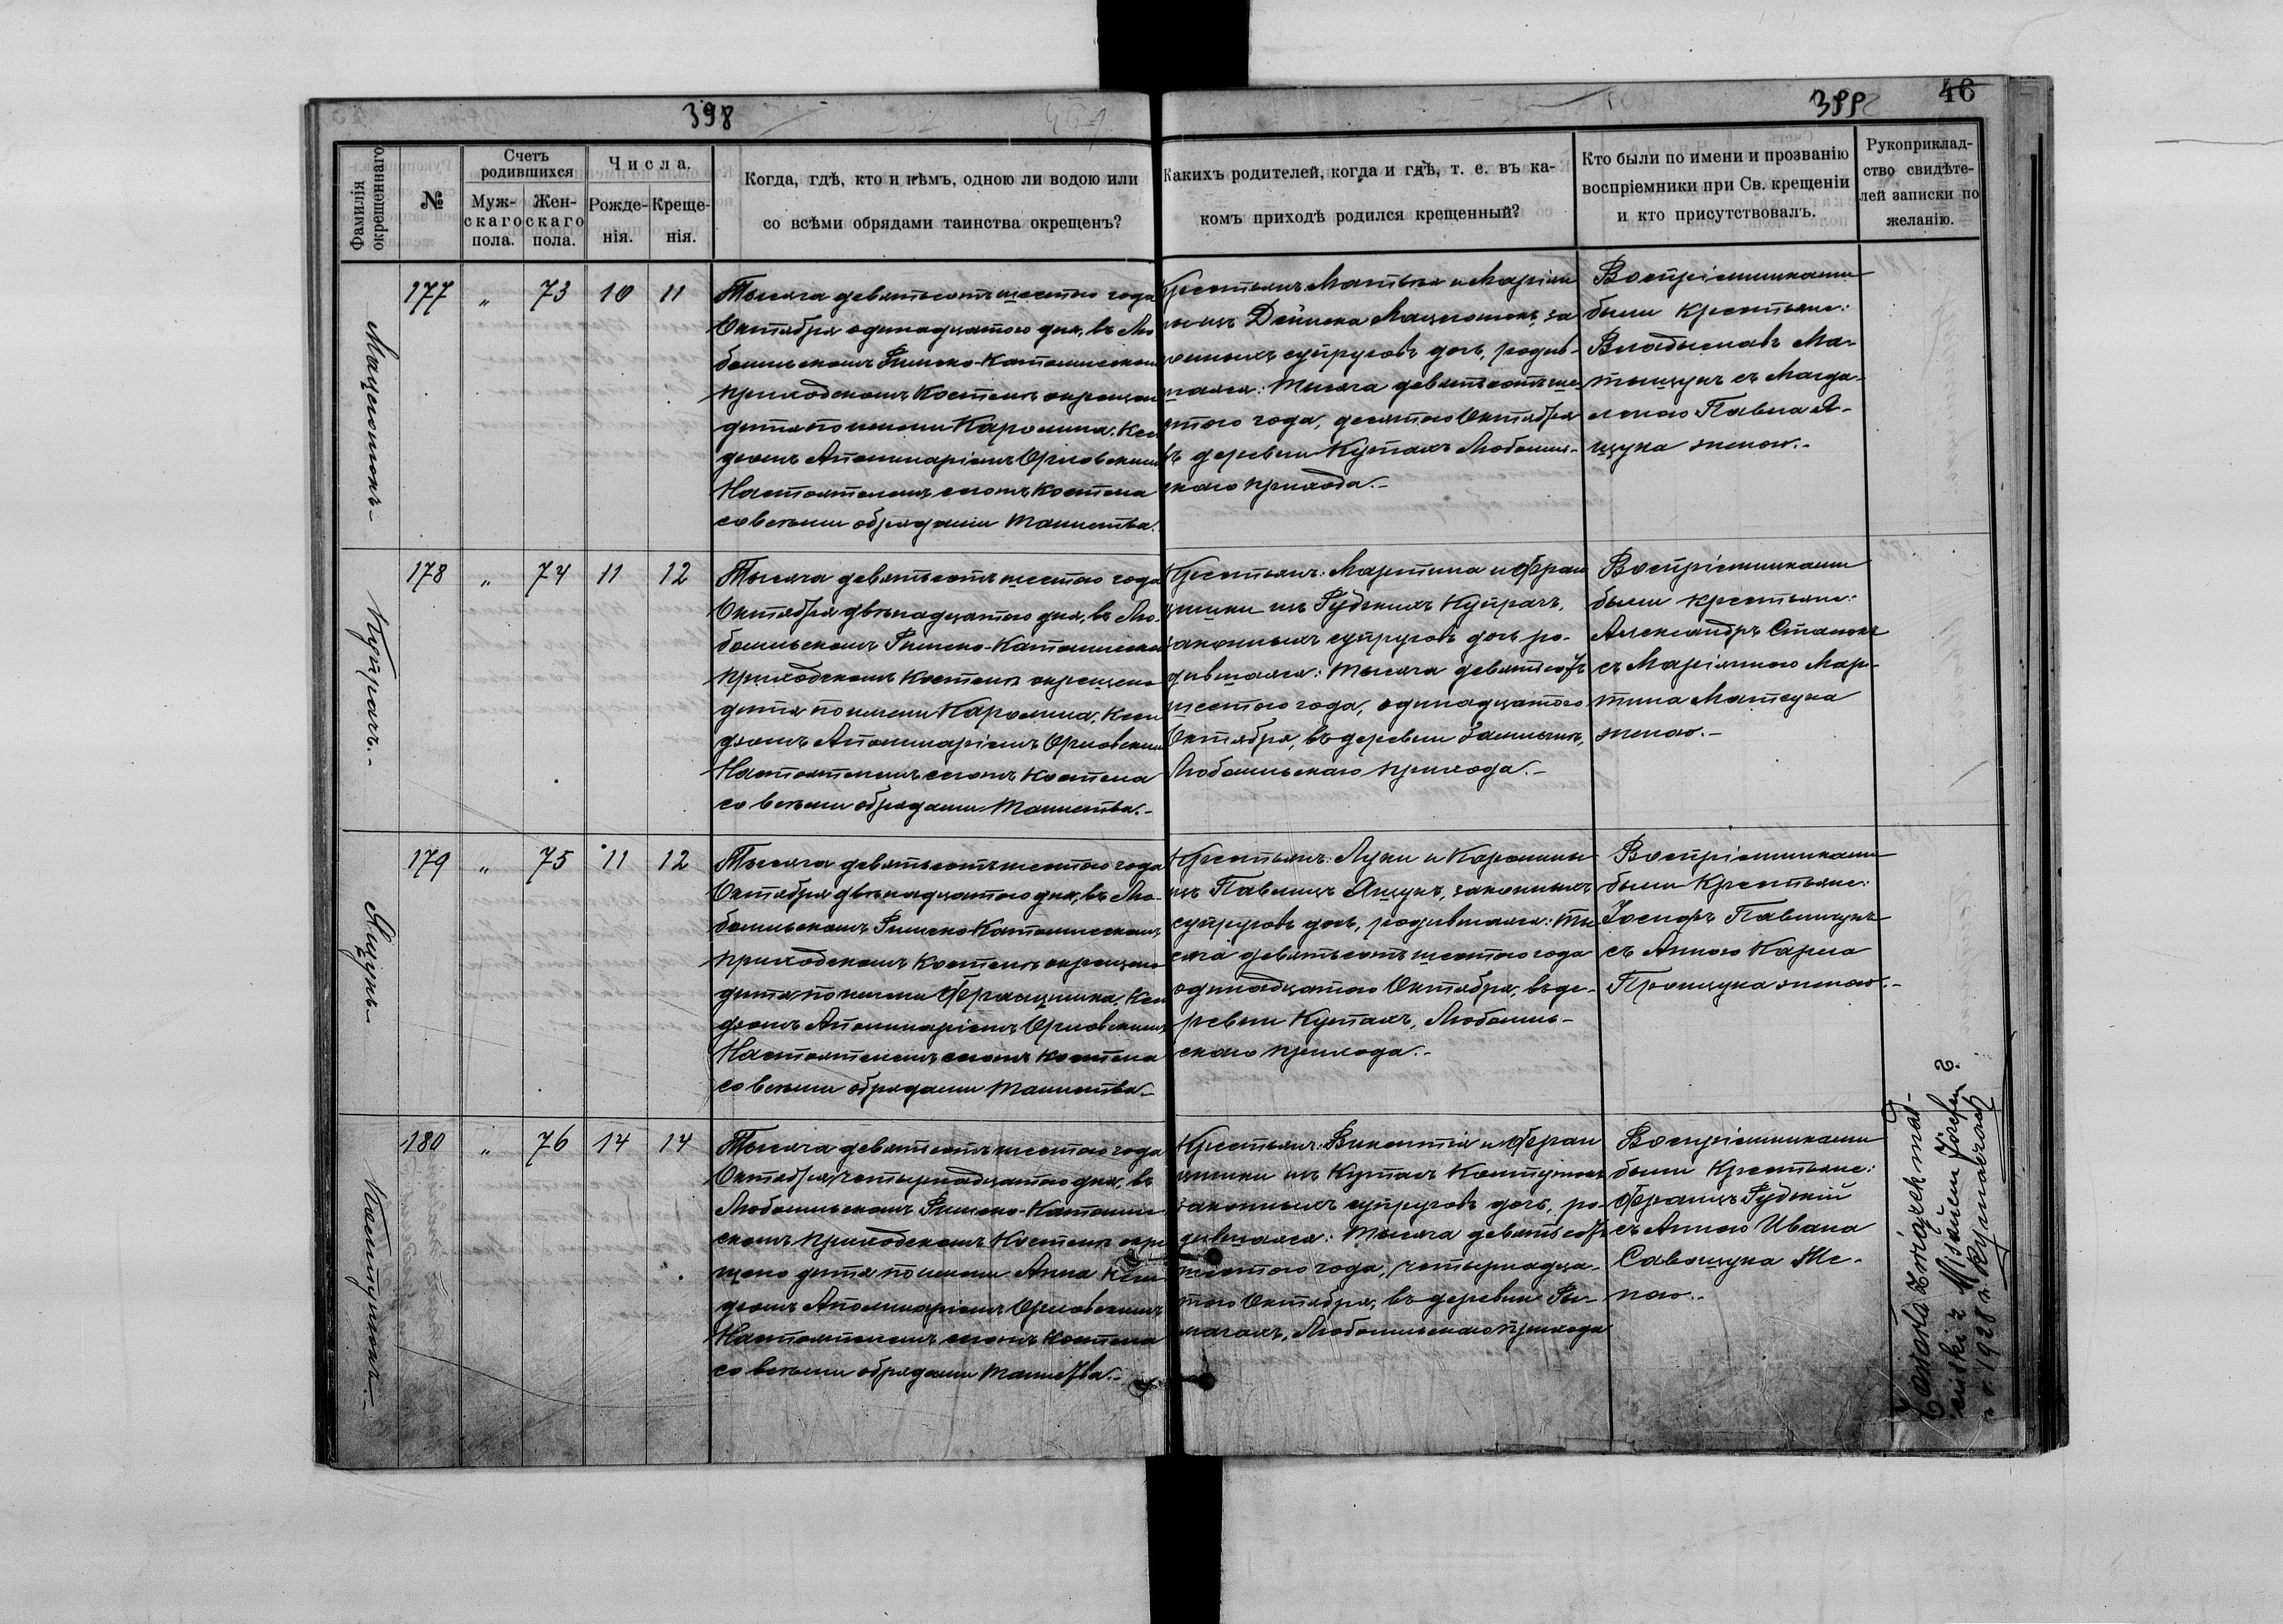 398
399
46
Фамилія окрещеннаго
№
Счетъ родившихся
Муж-скаго пола.
Жен-скаго пола.
Числа.
Рожде-нія.
Креще-нія.
Когда, гдѣ, кто и кѣмъ, одною ли водою или
со всѣми обрядами таинства окрещенъ?
Какихъ родителей, когда и гдѣ, т. е. въ ка-
комъ приходѣ родился крещенный?
Кто были по имени и прозванію
воспріемники при Св. крещеніи
и кто присутствовалъ.
Рукоприклад-
ство свидѣте-
лей записки по
желанію.
177 " 73 10 11
Тысяча девятьсотъ шестого года
Октября одинадцатого дня, въ Лю-
бомльскомъ Римско-Католическомъ
приходскомъ Костелѣ окрещено
дитя по имени Каролина, Ксен
дзомъ Аполинаріемъ Орловскимъ
Настоятелемъ сего Костела
со всѣми обрядами таинства.
Крестьянъ Матвѣя и Маріи
законныхъ супруговъ дочь, родив-
шаяся: тысяча девятьсотъ ше-
стого года, десятого Октября
въ деревни Кутахъ Любомль-
скаго прихода.-
Воспріемниками
были Крестьяне:
Владыславъ Ма-
тыщукъ съ Магда-
леною Павла Я-
щука женою.-
178 " 74 11 12
Купрачъ.-
Тысяча девятьсотъ шестого года
Октября двѣнадцатого дня, въ Лю-
бомльскомъ Римско-Католическомъ
приходскомъ Костелѣ окрещено
дитя по имени Каролина, Ксен
дзомъ Аполинаріемъ Орловскимъ
Настоятелемъ сего Костела
со всѣми обрядами таинства.-
Крестьянъ: Мартина и Фран
цишки изъ Рудскихъ Купрачъ,
законныхъ супруговъ дочь ро-
дившаяся: тысяча девятсотъ
шестого года, одинадцатого
Октября, въ деревни
Любомльскаго прихода.-
Воспріемниками
были крестьяне:
Александръ
съ Маріянною Мар-
тина
женою.-
179 " 75 11 12
Ящукъ.-
Тысяча девятьсотъ шестого года
Октября двѣнадцатого дня, въ Лю-
бомльскомъ Римско-Католическомъ
приходскомъ Костелѣ окрещено
дитя по имени Францишка, Ксен
дзомъ Аполинаріемъ Орловскимъ
Настоятелемъ сего Костела
со всѣми обрядами таинства.-
Крестьянъ: Луки и Каролины
изъ Ящукъ, законныхъ
супруговъ дочь, родившаяся: ты
сяча девятьсотъ шестого года
одинадцатого Октября, въ де-
ревни Кутахъ, Любомль-
скаго прихода.-
Воспріемниками
были Крестьяне:
Іосифъ
съ Анною Карла
женою.-
180 " 76 14 14
Тысяча девятсотъ шестого года
Октября четырнадцатого дня, въ
Любомльскомъ Римско-Католиче-
скомъ приходскомъ Костелѣ окре-
щено дитя по имени Анна Ксен
дзомъ Аполинаріемъ Орловскимъ
Настоятелемъ сего Костела
со всѣми обрядами таинства.-
Крестьянъ: Викентія и Фран
цишки изъ
законныхъ супруговъ дочь, ро-
дившаяся: тысяча девятсотъ
шестого года, четырнадца-
того Октября, въ деревни Ры-
мачахъ, Любомльскаго прихода
Воспріемниками
были Крестьяне:
Францъ Рудскій
съ Анною Ивана
Савощука Же-
ною.-
związek mał-
żeński z Józefem
r. 1928